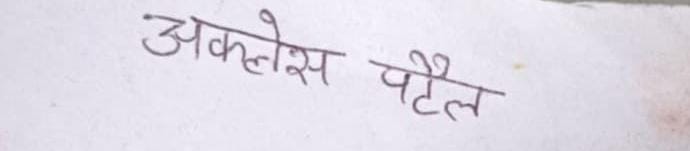 अकलेस पटैल